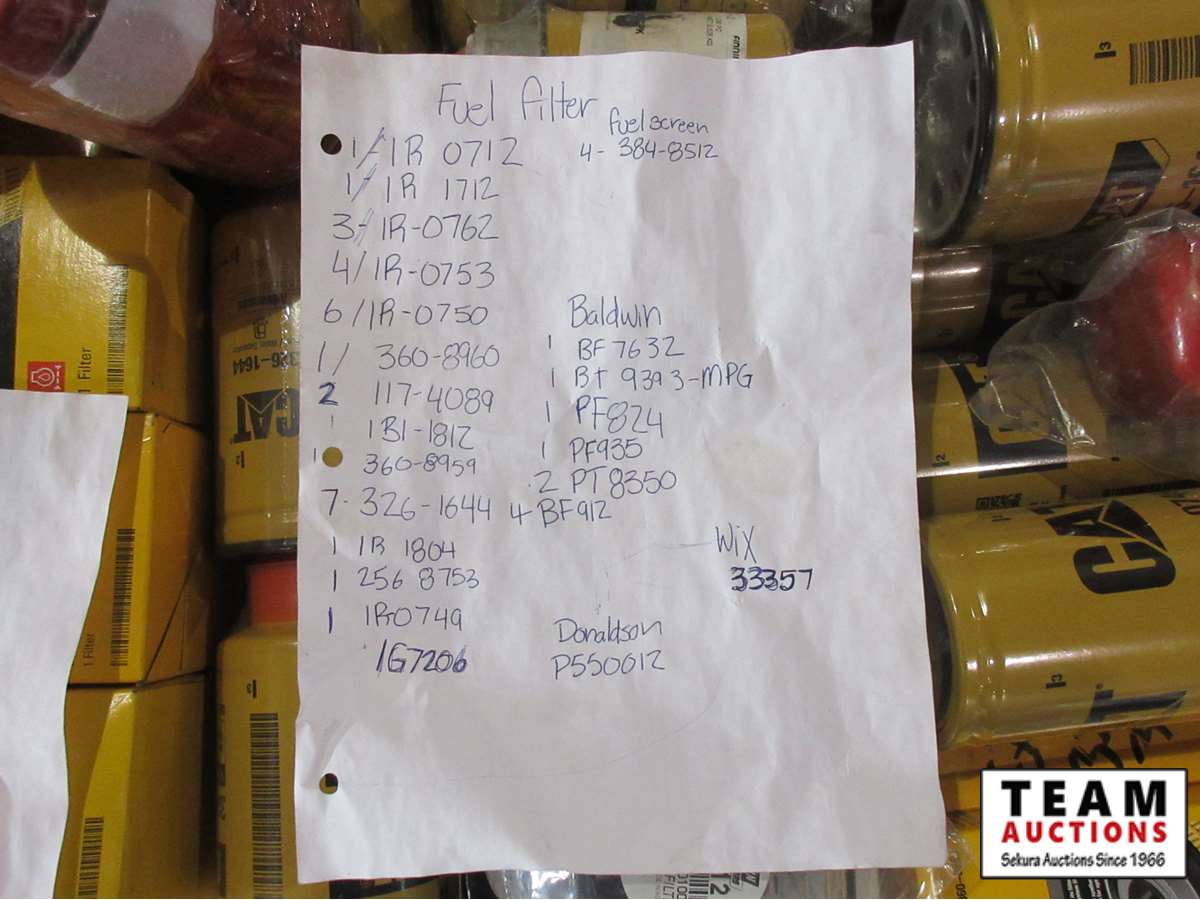 Fuel filter
fuel screen
4- 384-8512
1/ 1R 0712
1/ 1R 1712
3- 1R-0762
4/ 1R-0753
6/ 1R-0750
1/ 360-8960
2 117-4089
1 1B1-1812
1 360-8959
7- 326-1644
1 1R 1804
1 256 8753
1 1R0749
1G7206
Baldwin
1 BF 7632
1 Bt 9393-MPG
1 PF824
1 PF935
2 PT8350
4- BF912
Wix
33357
Donaldson
P550012
1 Filter
326-1644
CAT
1 Filter
CAT
TEAM
AUCTIONS
Sekura Auctions Since 1966